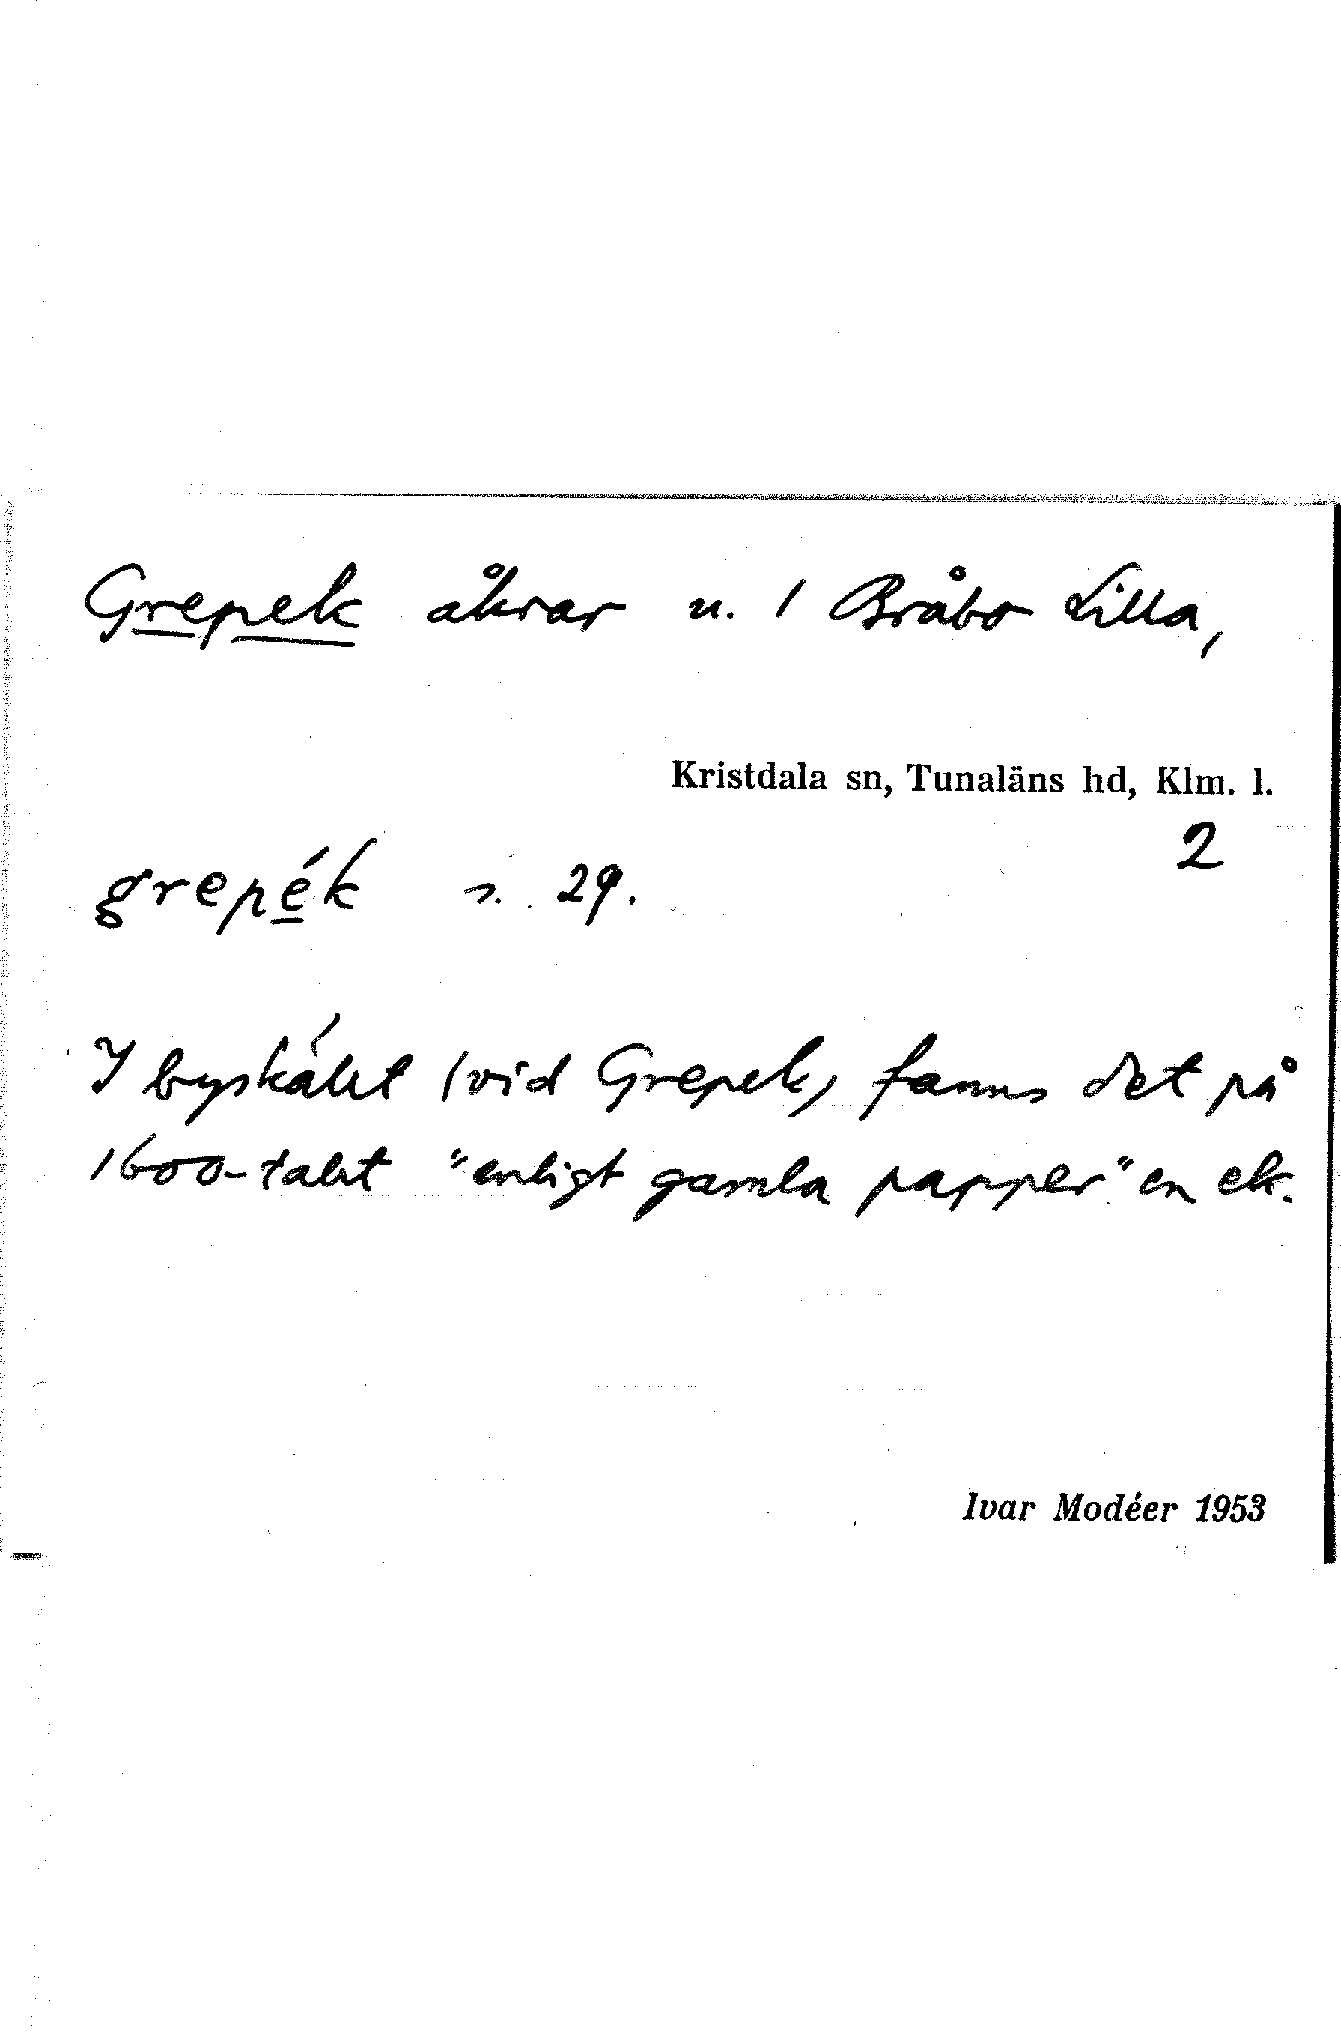 Grepek åkrar u. 1 Bråbo Lilla,
Kristdala sn, Tunaläns hd, Klm. l.
2
grepék n. 29.
I byskälet (vid Grepek) fanns det på
1600-talet "enligt gamla papper" en ek.
Ivar Modéer 1953